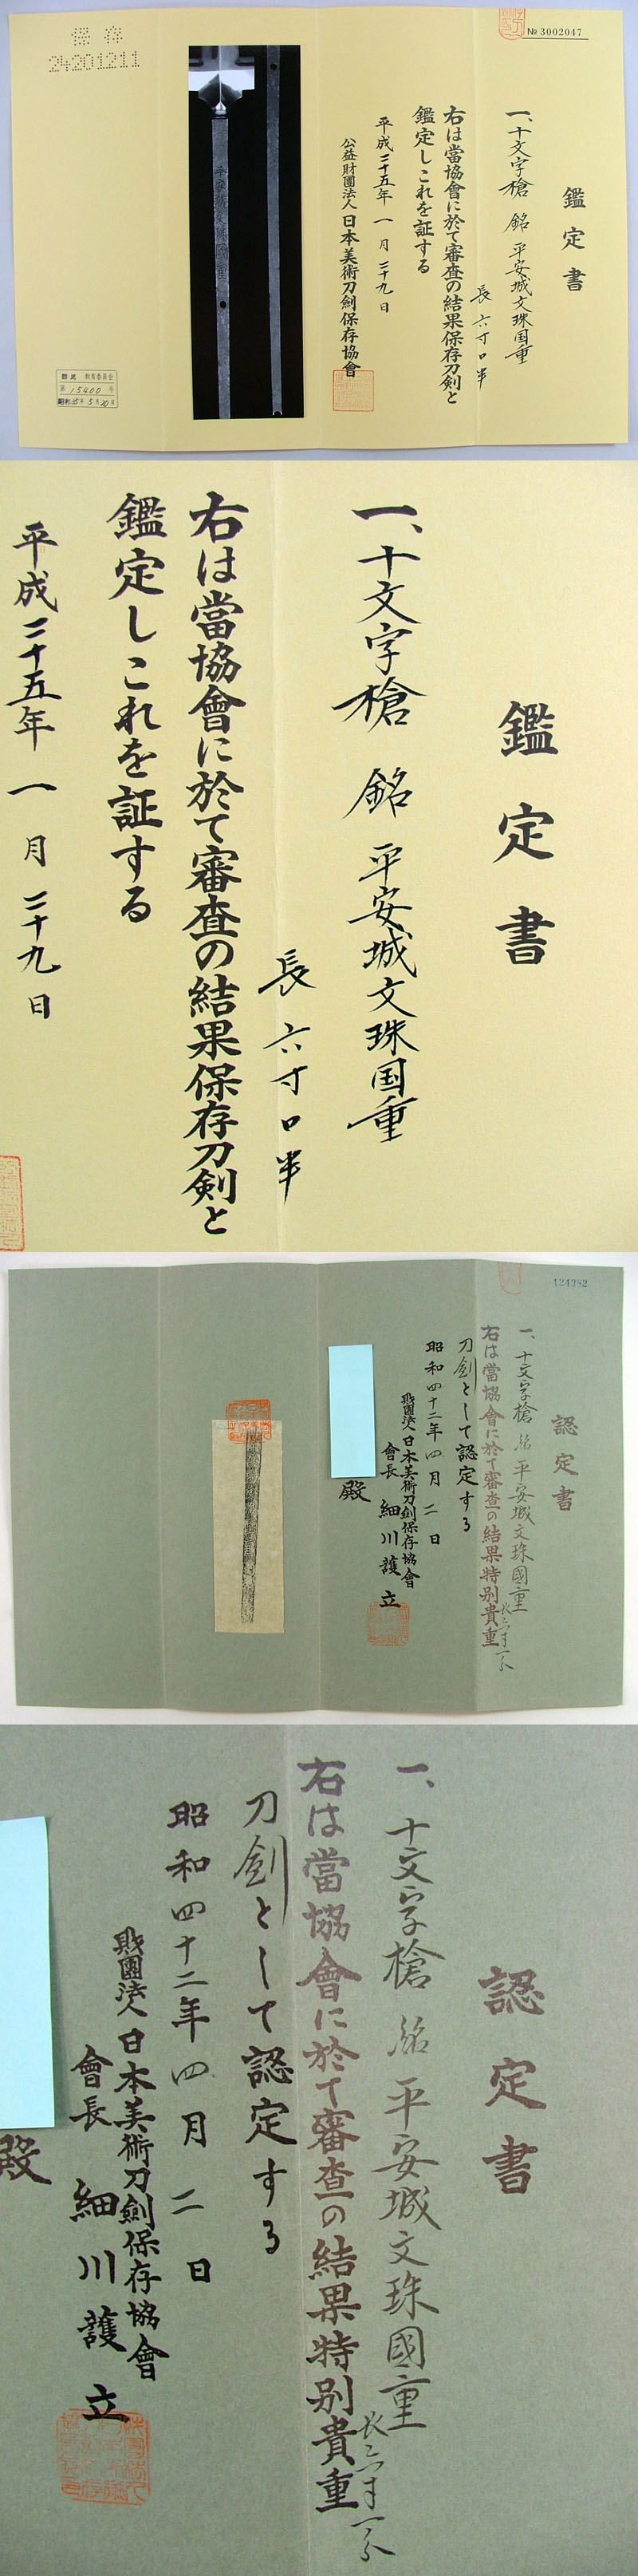 № 3002047
鑑定書
一、十文字槍 銘 平安城文珠国重
長 六寸口半
右は當協會に於て審査の結果保存刀剣と
鑑定しこれを証する
平成二十五年 一月 二十九日
公益財團法人 日本美術刀劍保存協會
保存
24201212
教育委員会
第 15400 号
昭和35年5月20日
鑑定書
一、十文字槍 銘 平安城文珠国重
長 六寸口半
右は當協會に於て審査の結果保存刀剣と
鑑定しこれを証する
平成二十五年 一月 二十九日
124382
認定書
一、十文字槍 銘 平安城文珠國重
長六寸一分
右は當協會に於て審査の結果特別貴重
刀劍として認定する
昭和四十二年四月二日
財團法人 日本美術刀劍保存協會
會長 細川護立
殿
認定書
一、十文字槍 銘 平安城文珠國重
長六寸一分
右は當協會に於て審査の結果特別貴重
刀劍として認定する
昭和四十二年四月二日
財團法人 日本美術刀劍保存協會
會長 細川護立
殿